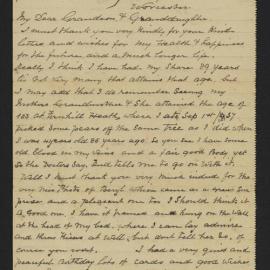 Worcester
My Dear Grandson & Granddaughter
I must thank you very kindly for your kind
letter and wishes for my Health & happiness
for the future, and a much longer life.
Really I think I have had my share 89 years
is not very many that attains that age, but
I may add that I do remember seeing my
Mothers Grandmother & She attained the age of
103 at Fernhill Heath, where I sat, Sep 1st 1937
Picked some years off the same Tree as I did when
I was 4 years old 85 years ago. So you see I have some
old blood in my veins and a fair good Body yet
so the Doctors say, and tells me to go on with it.
Well I must thank you very much indeed for the
very nice Photo of Beryl which came as a great Sur
prise and a pleasant one too I should think it
a good one, I have it framed and hung on the Wall
at the head of my Bed, where I can lay admire
and throw kisses at Well, but don't tell her so, of
course you wont. I had a very quiet and
peaceful Birthday lots of cards and good wishes